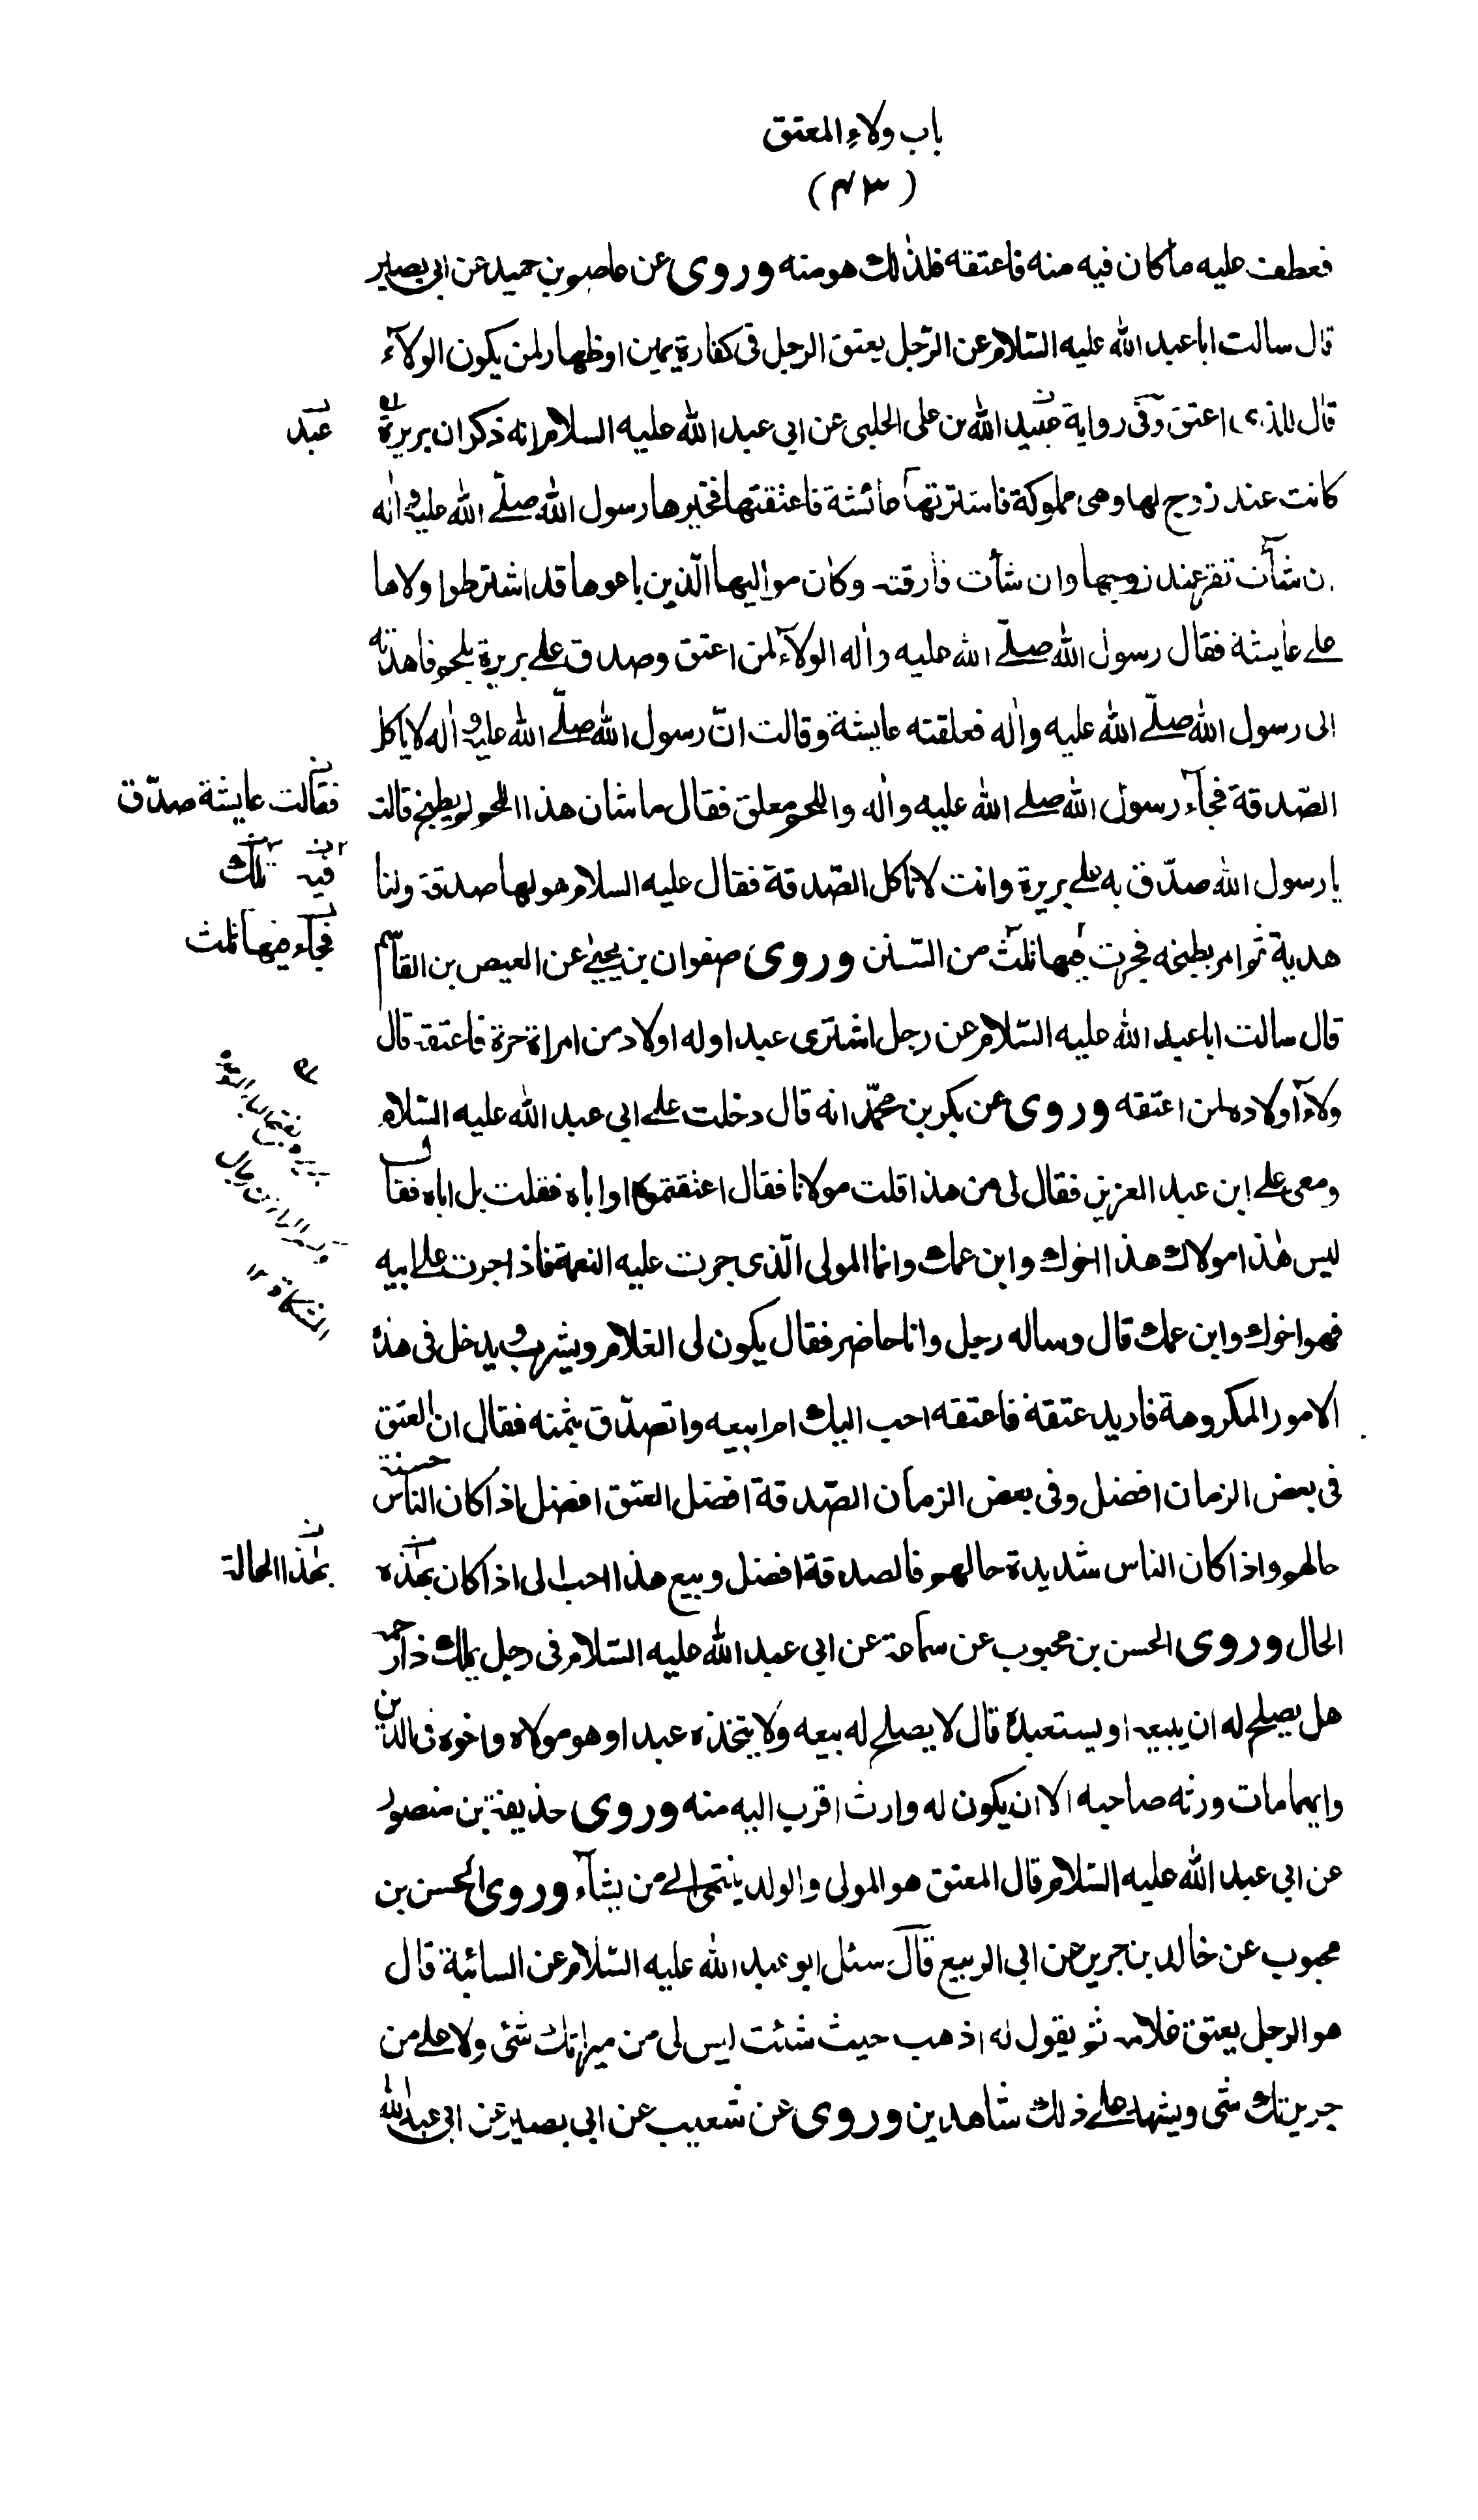 باب ولاء المعتق
(٤٣)
فعطف عليه ما كان فيه منه فاعتقه فلذلك هو منه وروى عن عاصم بن حميد عن ابي بصير
قال سالت ابا عبد الله عليه السّلام عن الرّجل يعتق الرجل في كفارة يمين او ظهار لمن يكون الولآء
قال للذى اعتق وفى رواية عبيد الله بن على الحلبى عن ابي عبد الله عليه السلام انه ذكر ان بريرة
عبد
كانت عند زوج لها وهى مملوكة فاشترتها عائشة فاعتقتها فخيرها رسول الله صلّى الله عليه واله
ن شآءت تقر عند زوجها وان شأت فارقته وكان مواليها الّذين باعوها قد اشترطوا ولاها
على عايشة فقال رسول الله صلّى الله عليه واله الولآء لمن اعتق وصدق على بريرة بلحم فاهدته
الى رسول الله صلّى الله عليه واله فعلقته عايشة وقالت انّ رسول الله صلّى الله عليه واله لا ياكل
الصّدقة فجآء رسول الله صلى الله عليه واله واللحم معلق فقال ما شان هذا اللحم لم يطبخ قالت
فقالت عايشة صدّق
يا رسول الله صدّق به على بريرة وانت لا تاكل الصّدقة فقال عليه السلام هو لها صدقة ولنا
فيه تلك
هدية ثم امر بطبخه فجرت فيها ثلث من السّنن وروى صفوان بن يحيى عن العيص بن القاسم
فجآء فيها ثلث
قال سالت ابا عبد الله عليه السّلام عن رجل اشترى عبدا وله اولاد من امراة حرة فاعتقه قال
ولآء اولاده لمن اعتقه وروى عن بكر بن محمّد انه قال دخلت على ابى عبد الله عليه السّلام
ومعى على ابن عبد العزيز فقال لى من هذا قلت مولانا فقال اعتقتموه او اباه فقلت بل اباه فقال
ليس هٰذا مولاك هذا اخوك وابن عمك وانما المولى الّذى جرت عليه النعمة فاذا جرت على ابيه
فهو اخوك وابن عمك قال وساله رجل وانا حاضر فقال يكون لى الغلام ويشرب ويدخل فى هذه
الامور المكروهة فاريد عتقه فاعتقه احب اليك ام ابيعه واتصدّق بثمنه فقال ان العتق
فى بعض الزمان افضل وفى بعض الزمان الصّدقة افضل العتق افضل اذا كان الناس حسنة
حالهم واذا كان الناس شديدة حالهم فالصدقة افضل وبيع هذا احب الى اذا كان بهٰذه
بهذا الحالة
الحال وروى الحسن بن محبوب عن سماعة عن ابى عبد الله عليه السّلام فى رجل يملك ذا رحم
هل يصلح له ان يبيعه او يستعبده قال لا يصلح له بيعه ولا يتخذه عبدا وهو مولاه واخوه فى الدين
وايهما مات ورثه صاحبه الا ان يكون له وارث اقرب اليه منه وروى حذيفة بن منصور
عن ابى عبد الله عليه السّلام قال المعتق هو المولى والولد ينتمى الى من يشآء وروى الحسن بن
محبوب عن خالد بن جرير عن ابى الربيع قال سئل ابو عبد الله عليه السّلام عن السائبة قال
هو الرجل يعتق غلامه ثم يقول له اذهب حيث شئت ليس لى من ميراثك شئ ولا على من
جريرتك شى ويشهد على ذلك شاهدين وروى عن شعيب عن ابى بصير عن ابى عبد الله